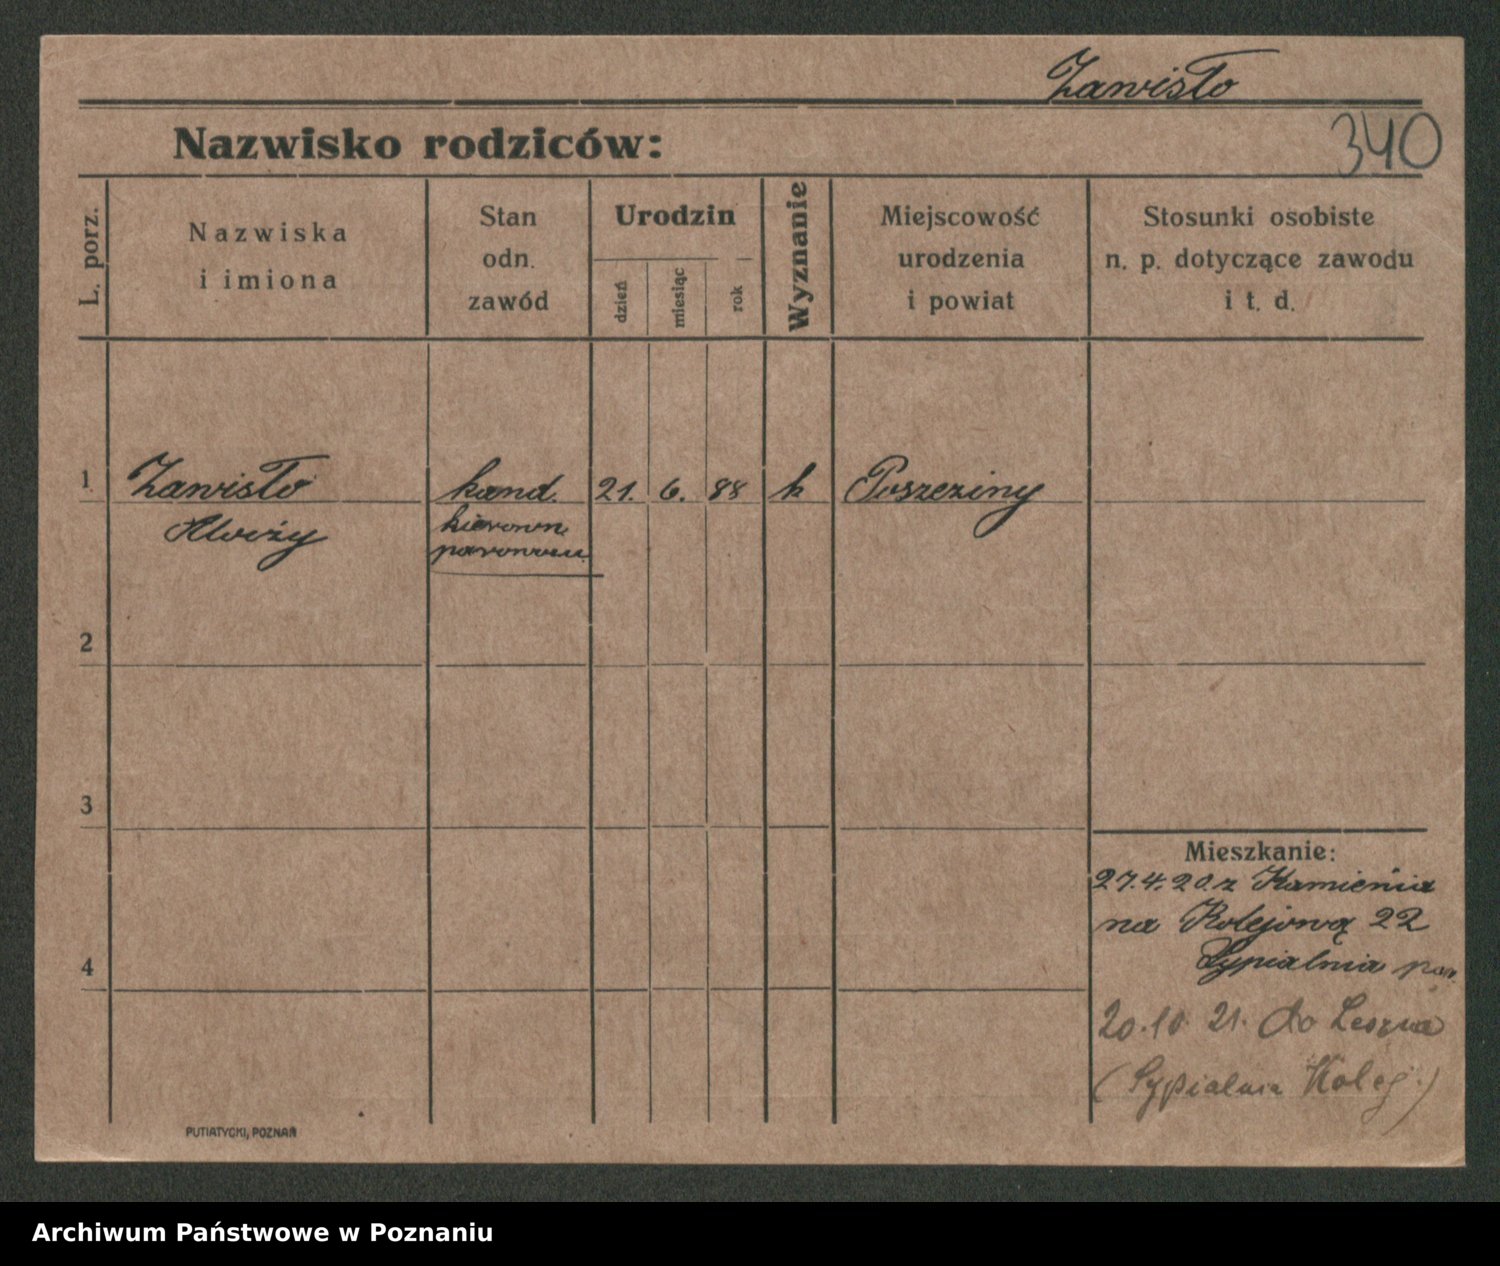 Zawisto
340
Nazwisko rodziców:
L. porz.
Nazwiska
i imiona
Stan
odn.
zawód
Urodzin
dzień
miesiąc
rok
Wyznanie
Miejscowość
urodzenia
i powiat
Stosunki osobiste
n. p. dotyczące zawodu
i t. d.
1 Zawisto kand. 21. 6. 88 k
Alojzy kierown.
parowozu
2
3
4
Mieszkanie:
27.4.20 z Kamienia
na Kolejową 22
Sypialnia par.
20.10 21. do Leszna
(Sypialnia Kolej.)
PUTIATYCKI, POZNAŃ
Archiwum Państwowe w Poznaniu